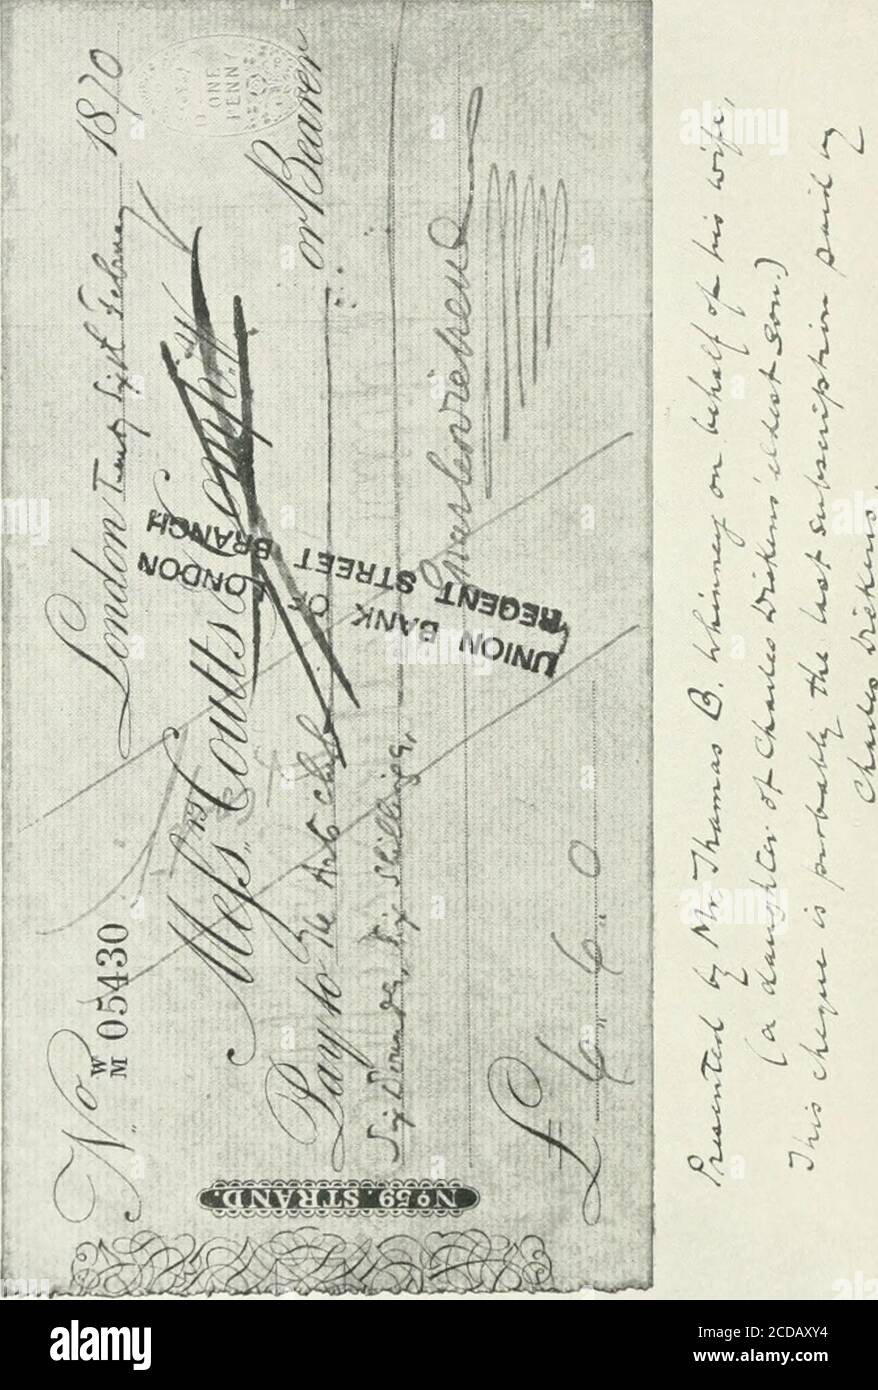 No. W/M 05430
London Twenty first February 1870
D ONE PENNY
Mess.rs Coutts & Comp.y
Pay to the Arts Club or Bearer
Six Pounds, Six Shillings,
£ 6 6 0
Charles Dickens
No 59. STRAND.
UNION BANK OF LONDON
REGENT STREET BRANCH
Presented by Mr. Thomas B. Whinney on behalf of his wife,
(a daughter of Charles Dickens' eldest son.)
This cheque is probably the last subscription paid by
Charles Dickens.
alamy
Image ID: 2CDAXY4
www.alamy.com